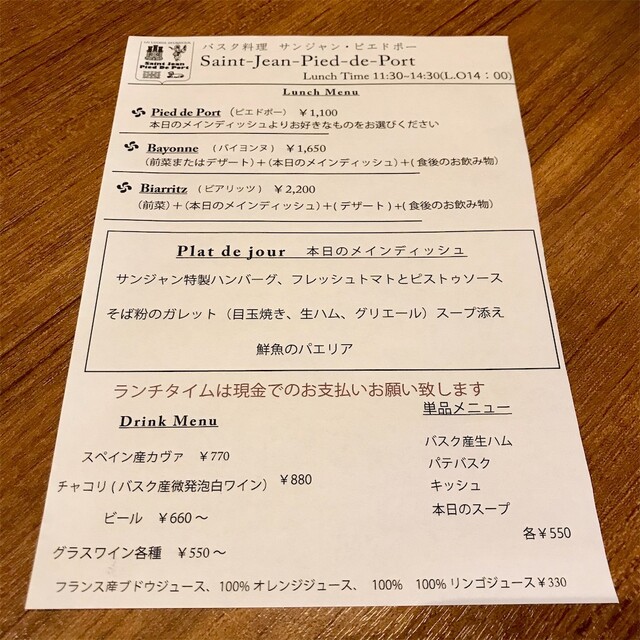 Saint Jean
Pied De Port
バスク料理 サンジャン・ピエドポー
Saint-Jean-Pied-de-Port
Lunch Time 11:30-14:30(L.O14：00)
Lunch Menu
Pied de Port （ピエドポー） ￥1,100
本日のメインディッシュよりお好きなものをお選びください
Bayonne （バイヨンヌ） ￥1,650
（前菜またはデザート）＋（本日のメインディッシュ）＋（食後のお飲み物）
Biarritz （ビアリッツ） ￥2,200
（前菜）＋（本日のメインディッシュ）＋（デザート）＋（食後のお飲み物）
Plat de jour 本日のメインディッシュ
サンジャン特製ハンバーグ、フレッシュトマトとピストゥソース
そば粉のガレット（目玉焼き、生ハム、グリエール）スープ添え
鮮魚のパエリア
ランチタイムは現金でのお支払いお願い致します
Drink Menu
スペイン産カヴァ ￥770
チャコリ（バスク産微発泡白ワイン） ￥880
ビール ￥660～
グラスワイン各種 ￥550～
フランス産ブドウジュース、100%オレンジジュース、 100% 100%リンゴジュース￥330
単品メニュー
バスク産生ハム
パテバスク
キッシュ
本日のスープ
各￥550